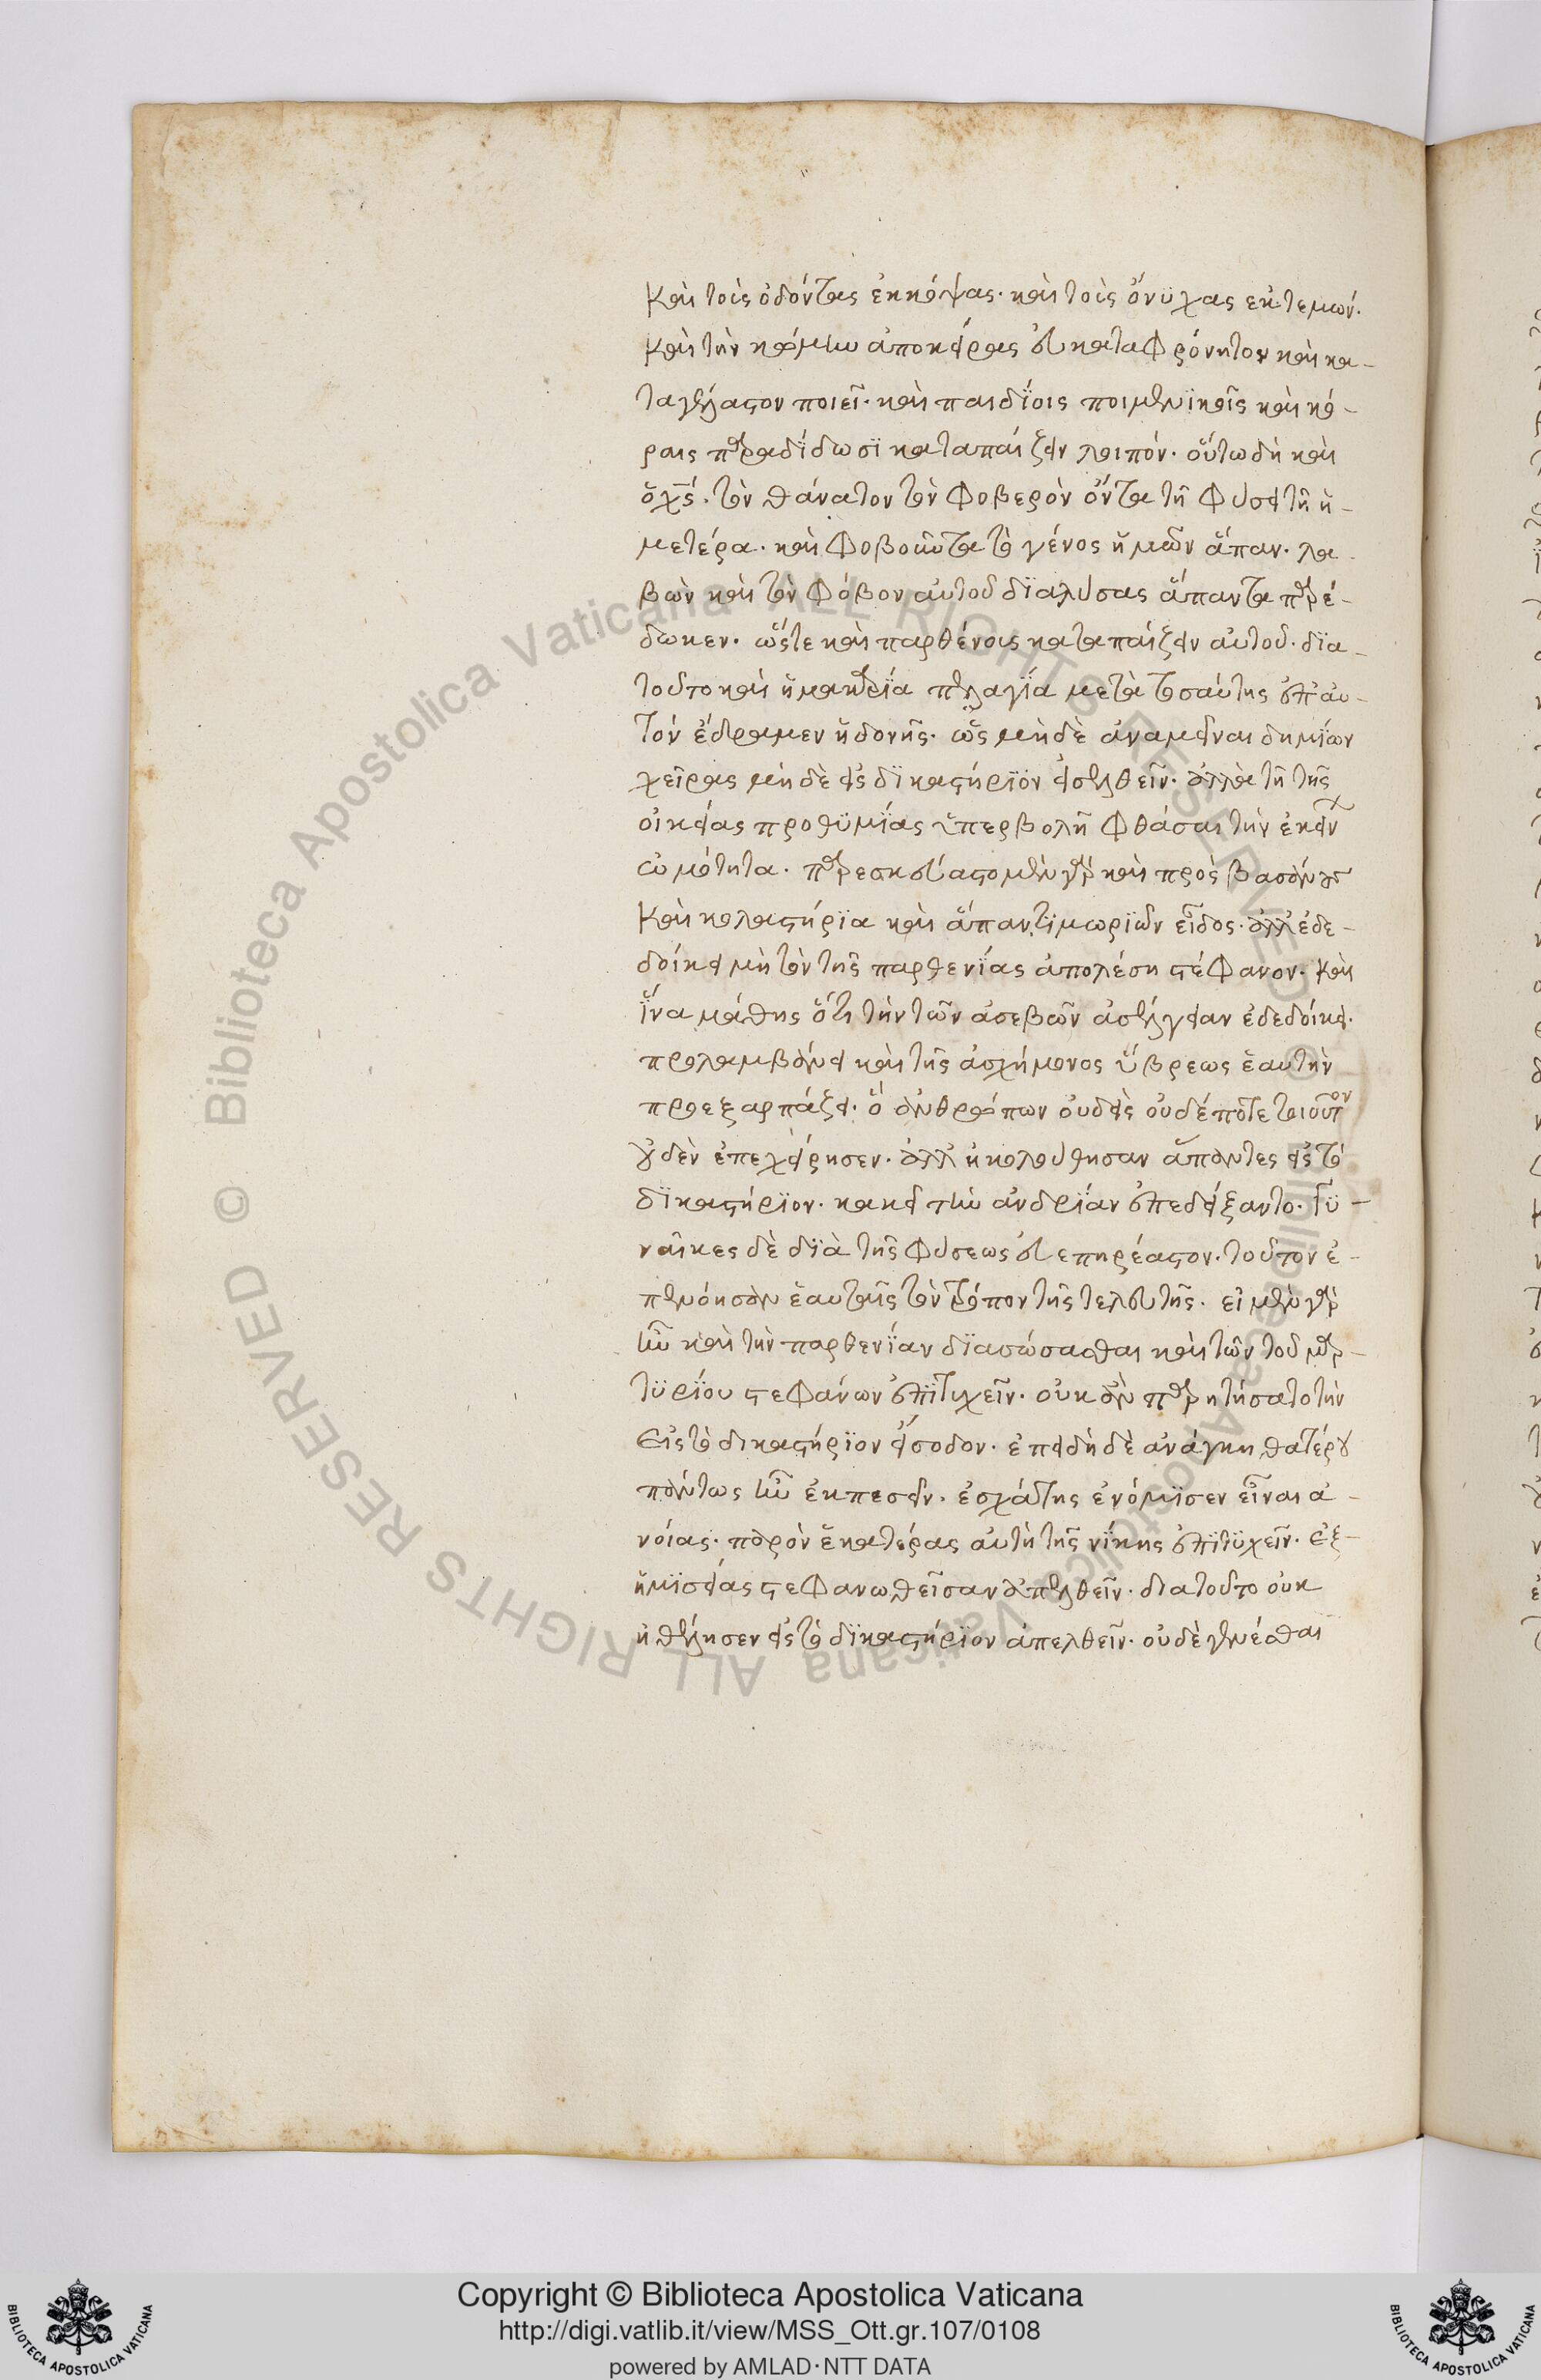 Καὶ τοὺς ὀδόντας ἐκκόψας· καὶ τοὺς ὄνϋχας εκτεμών·
Καὶ τὴν κόμην ἀποκείρας εὐκαταφρόνητον καὶ κα-
ταγέλαστον ποιεῖ· καὶ παιδίοις ποιμενϊκοῖς καὶ κό-
ραις παραδίδωσϊ καταπαίζειν λοιπόν· οὕτω δὴ καὶ
ὁ χς· τὸν θάνατον τὸν φοβερὸν ὄντα τῆ φύσει τῆ ἡ-
μετέρα· καὶ φοβοῦντα τὸ γένος ἡμῶν ἅπαν· λα-
βὼν καὶ τὸν φόβον αὐτοῦ διαλύσας ἅπαντα παρέ-
δωκεν· ὥστε καὶ παρθένοις καταπαίζειν αὐτοῦ· δϊα-
τοῦτο καὶ ἡ μακαρία πελαγία μετὰ τοσαύτης ἐπ' αυ-
τὸν ἔδραμεν ἡδονῆς· ὡς μὴδὲ ἀναμεῖναι δημίων
χεῖρας μὴδὲ εἰς δϊκαστήριον εἰσελθεῖν· ἀλλὰ τῆ τῆς
οἰκείας προθϋμίας ὑπερβολῆ φθάσαι τὴν ἐκείνων
ὠμότητα· παρεσκεύαστο μὲν γὰρ καὶ πρὸς βασάνους
Καὶ κολαστήρϊα καὶ ἅπαν τϊμωρϊῶν εἶδος· ἀλλ' ἐδε-
δοίκει μὴ τὸν τῆς παρθενίας ἀπολέση στέφανον· καὶ
ἵνα μάθης ὅτι τὴν τῶν ἀσεβῶν ἀσέλγειαν ἐδεδοίκει·
προλαμβάνει καὶ τῆς ἀσχήμονος ὕβρεως ἑαυτὴν
προεξαρπάζει· ὃ ἀνθρώπων οὐδεὶς οὐδέποτε τοιοῦτον
οὐδὲν ἐπεχείρησεν· ἀλλ' ἠκολούθησαν ἅπαντες εἰς τὸ
δϊκαστήριον· κακεῖ τὴν ἀνδρίαν ἐπεδείξαντο· Γϋ-
ναῖκες δὲ δϊὰ τῆς φύσεως εὐεπηρέαστον· τοῦτον ἐ-
πενόησαν ἑαυταῖς τὸν τρόπον τῆς τελευτῆς· εἰ μὲν γὰρ
ἦν καὶ τὴν παρθενίαν δϊασώσασθαι καὶ τῶν τοῦ μαρ-
τϋρίου στεφάνων ἐπϊτυχεῖν· οὐκ ἂν παρητήσατο τὴν
Εἰς τὸ δικαστήρϊον εἴσοδον· ἐπειδὴ δὲ ἀνάγκη θατέρου
πάντως ἦν ἐκπεσεῖν· ἐσχάτης ἐνόμϊσεν εἶναι ἀ-
νοίας· παρὸν ἑκατέρας αὐτὴ τῆς νίκης ἐπϊτϋχεῖν· ἐξ-
ἡμϊσείας στεφανωθεῖσαν ἀπελθεῖν· διατοῦτο οὐκ
ἠθέλησεν εἰς τὸ δϊκαστήρϊον ἀπελθεῖν· οὐδὲ γενέσθαι
Copyright © Biblioteca Apostolica Vaticana
http://digi.vatlib.it/view/MSS_Ott.gr.107/0108
powered by AMLAD·NTT DATA
BIBLIOTECA APOSTOLICA VATICANA
BIBLIOTECA APOSTOLICA VATICANA
© Biblioteca Apostolica Vaticana ALL RIGHTS RESERVED
© Biblioteca Apostolica Vaticana ALL RIGHTS RESERVED